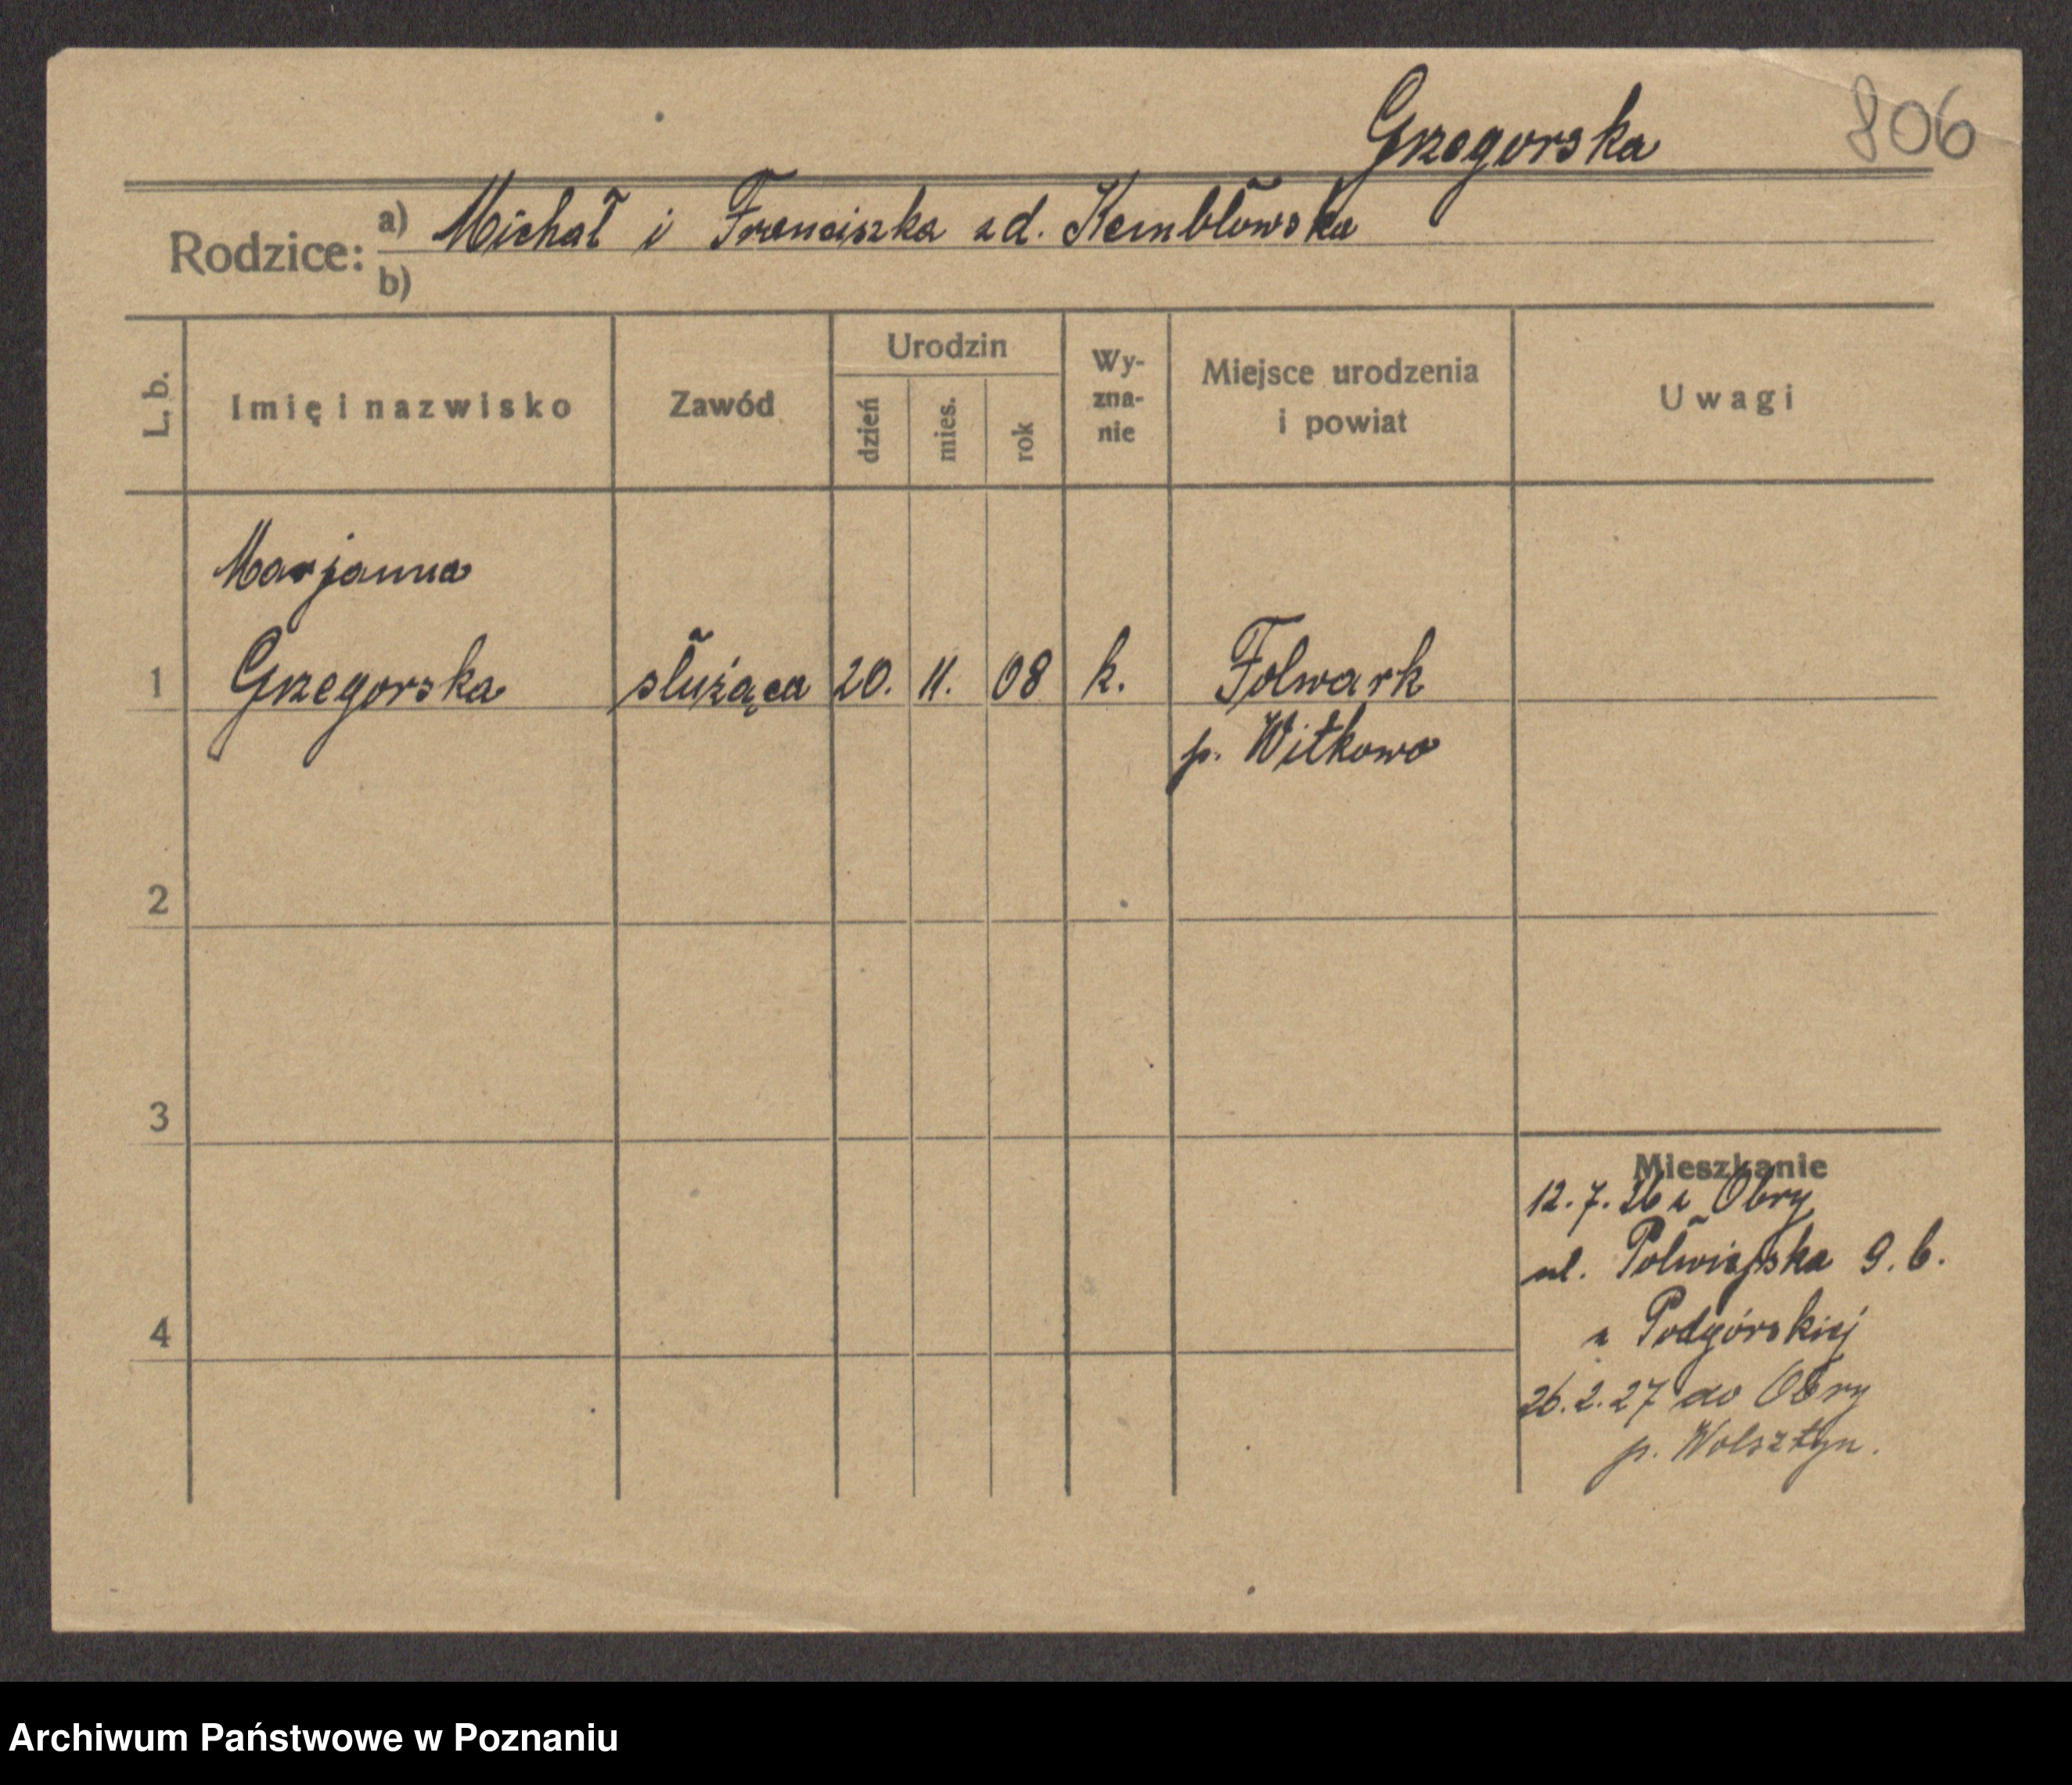 Grzegorska
806
Rodzice: a) Michał i Franciszka zd. Kembłowska
b)
L. b. Imię i nazwisko Zawód Urodzin dzień mies. rok Wy-zna-nie Miejsce urodzenia i powiat Uwagi
Marjanna
1 Grzegorska służąca 20. 11. 08 k. Folwark
p. Witkowo
2
3
Mieszkanie
12.7.26 z Obry
ul. Półwiejska 9. b.
4
z Podgórskiej
26.2.27 do Obry
p. Wolsztyn.
Archiwum Państwowe w Poznaniu